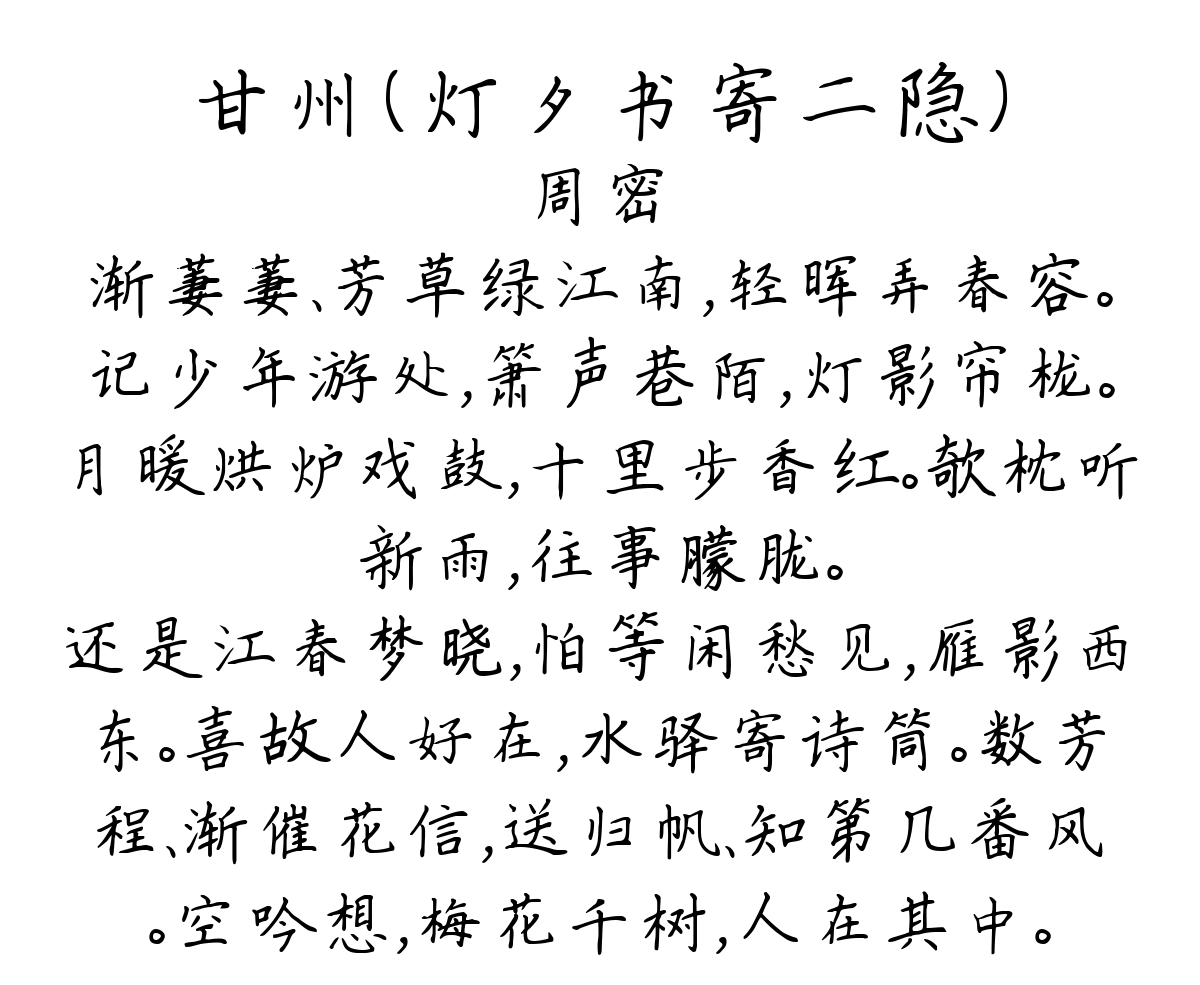 甘州(灯夕书寄二隐)
周密
渐萋萋、芳草绿江南,轻晖弄春容。
记少年游处,箫声巷陌,灯影帘栊。
月暖烘炉戏鼓,十里步香红。欹枕听
新雨,往事朦胧。
还是江春梦晓,怕等闲愁见,雁影西
东。喜故人好在,水驿寄诗筒。数芳
程、渐催花信,送归帆、知第几番风
。空吟想,梅花千树,人在其中。